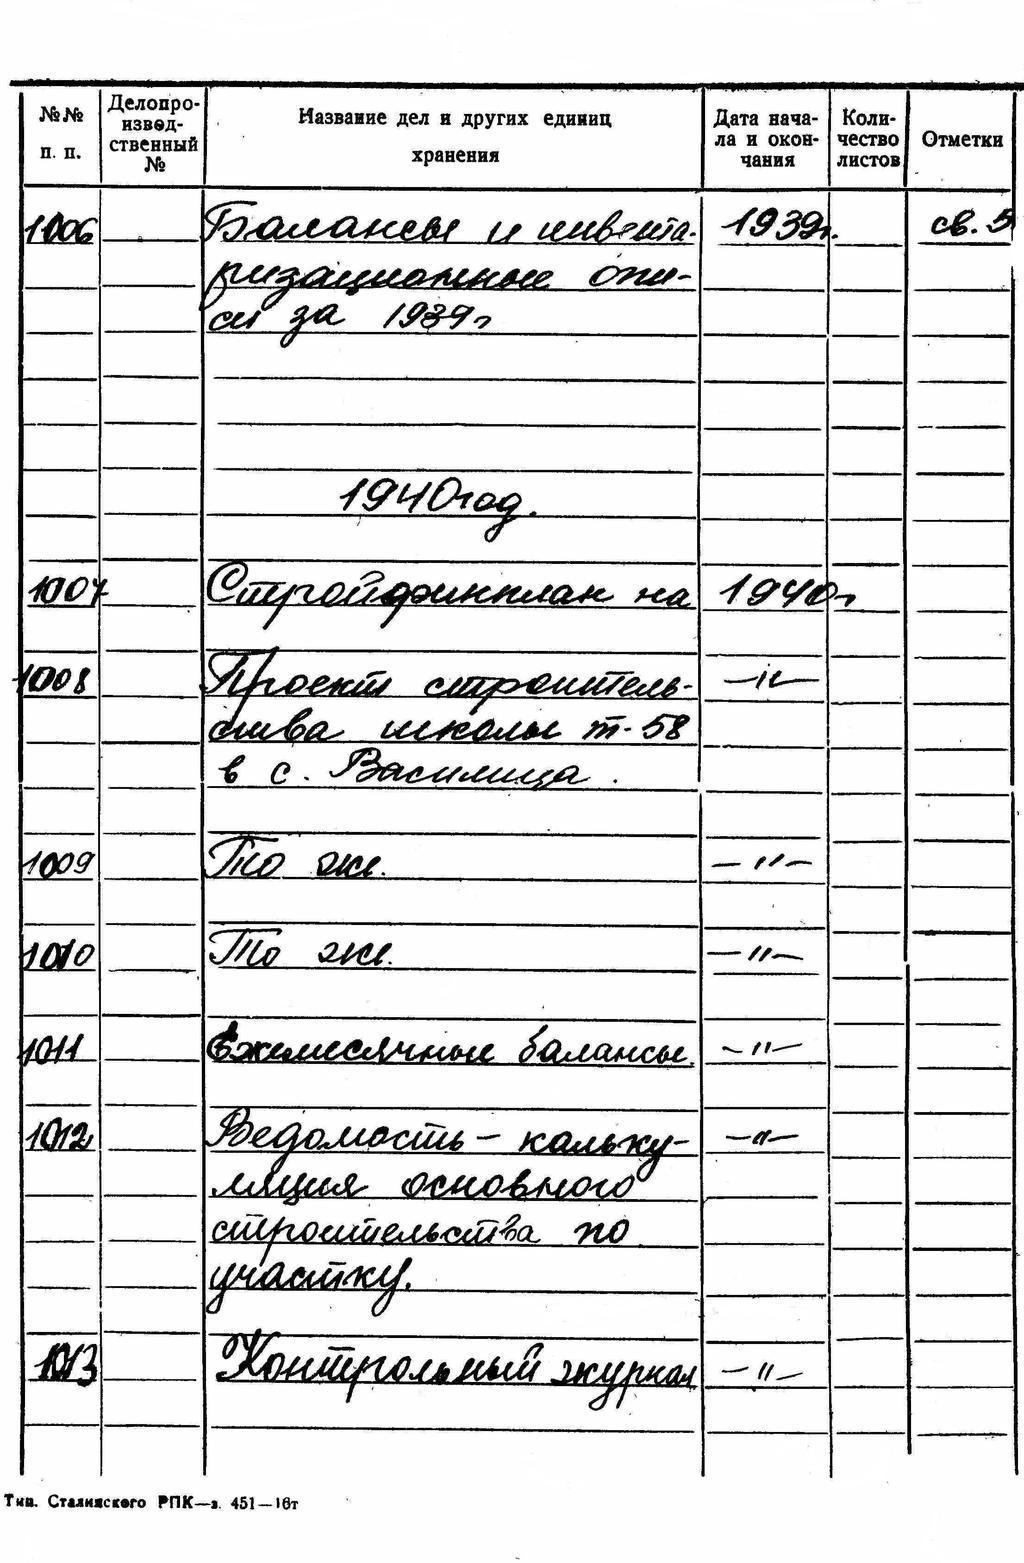 №№ п. п.
Делопро-
извод-
ственный
№
Название дел и других единиц
хранения
Дата нача-
ла и окон-
чания
Коли-
чество
листов
Отметки
1006 Балансы и инвента- 1939г. св. 5
ризационные опи-
си за 1939г
1940 год.
1007 Стройфинплан на 1940г
1008 Проект строитель- —"—
ства школы т-58
в с. Василица.
1009 То же. —"—
1010 То же. —"—
1011 Ежемесячные балансы. —"—
1012 Ведомость – кальку- —"—
ляция основного
строительства по
участку.
1013 Контрольный журнал —"—
Тип. Сталинского РПК—з. 451—16т